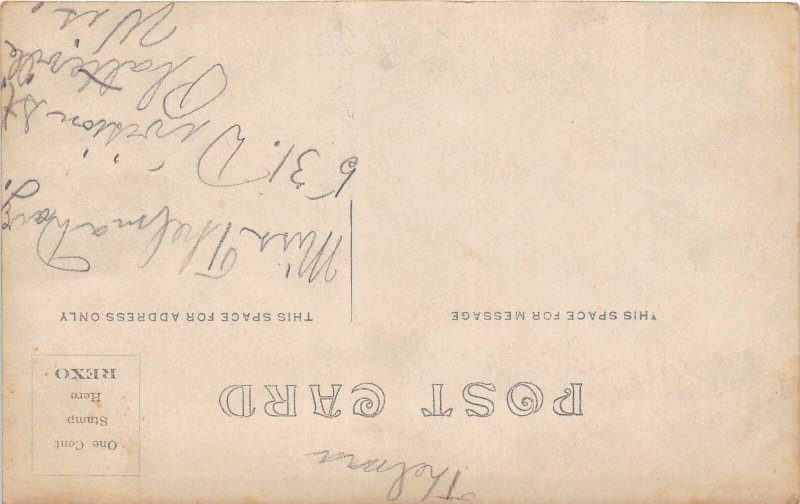 Thelma
POST CARD
One Cent
Stamp
Here
REXO
THIS SPACE FOR MESSAGE
THIS SPACE FOR ADDRESS ONLY
Miss. Thelma
631. Division St.
Platteville
Wis.